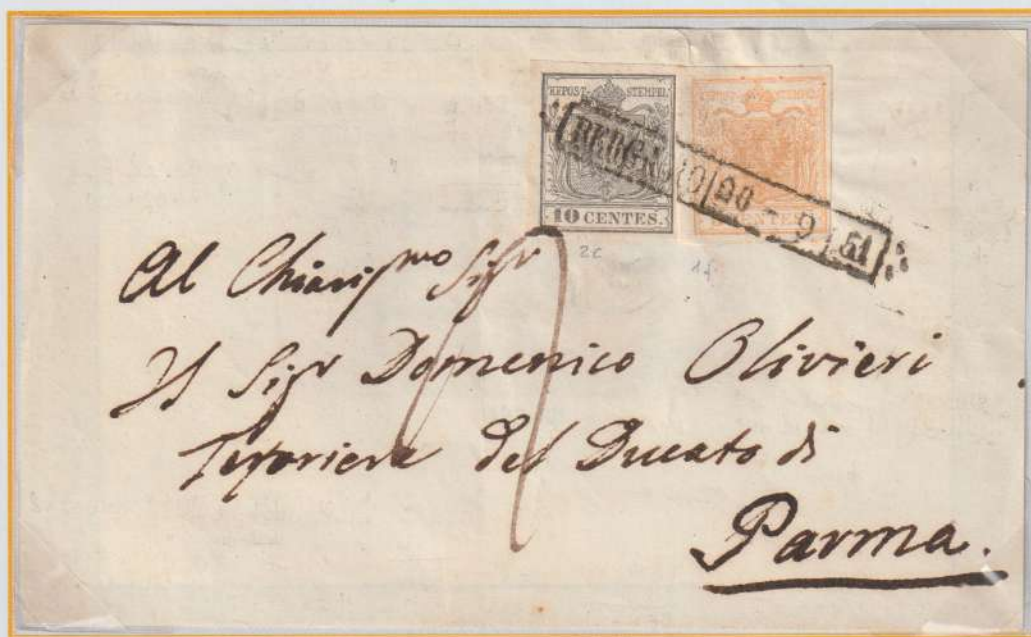 KKPOST-STEMPEL
10 CENTES.
CENTES.
BERGAMO
51
2c
Al Chiariſmo Sigr
Il Sigr Domenico Olivieri
Teſoriere del Ducato di
Parma.